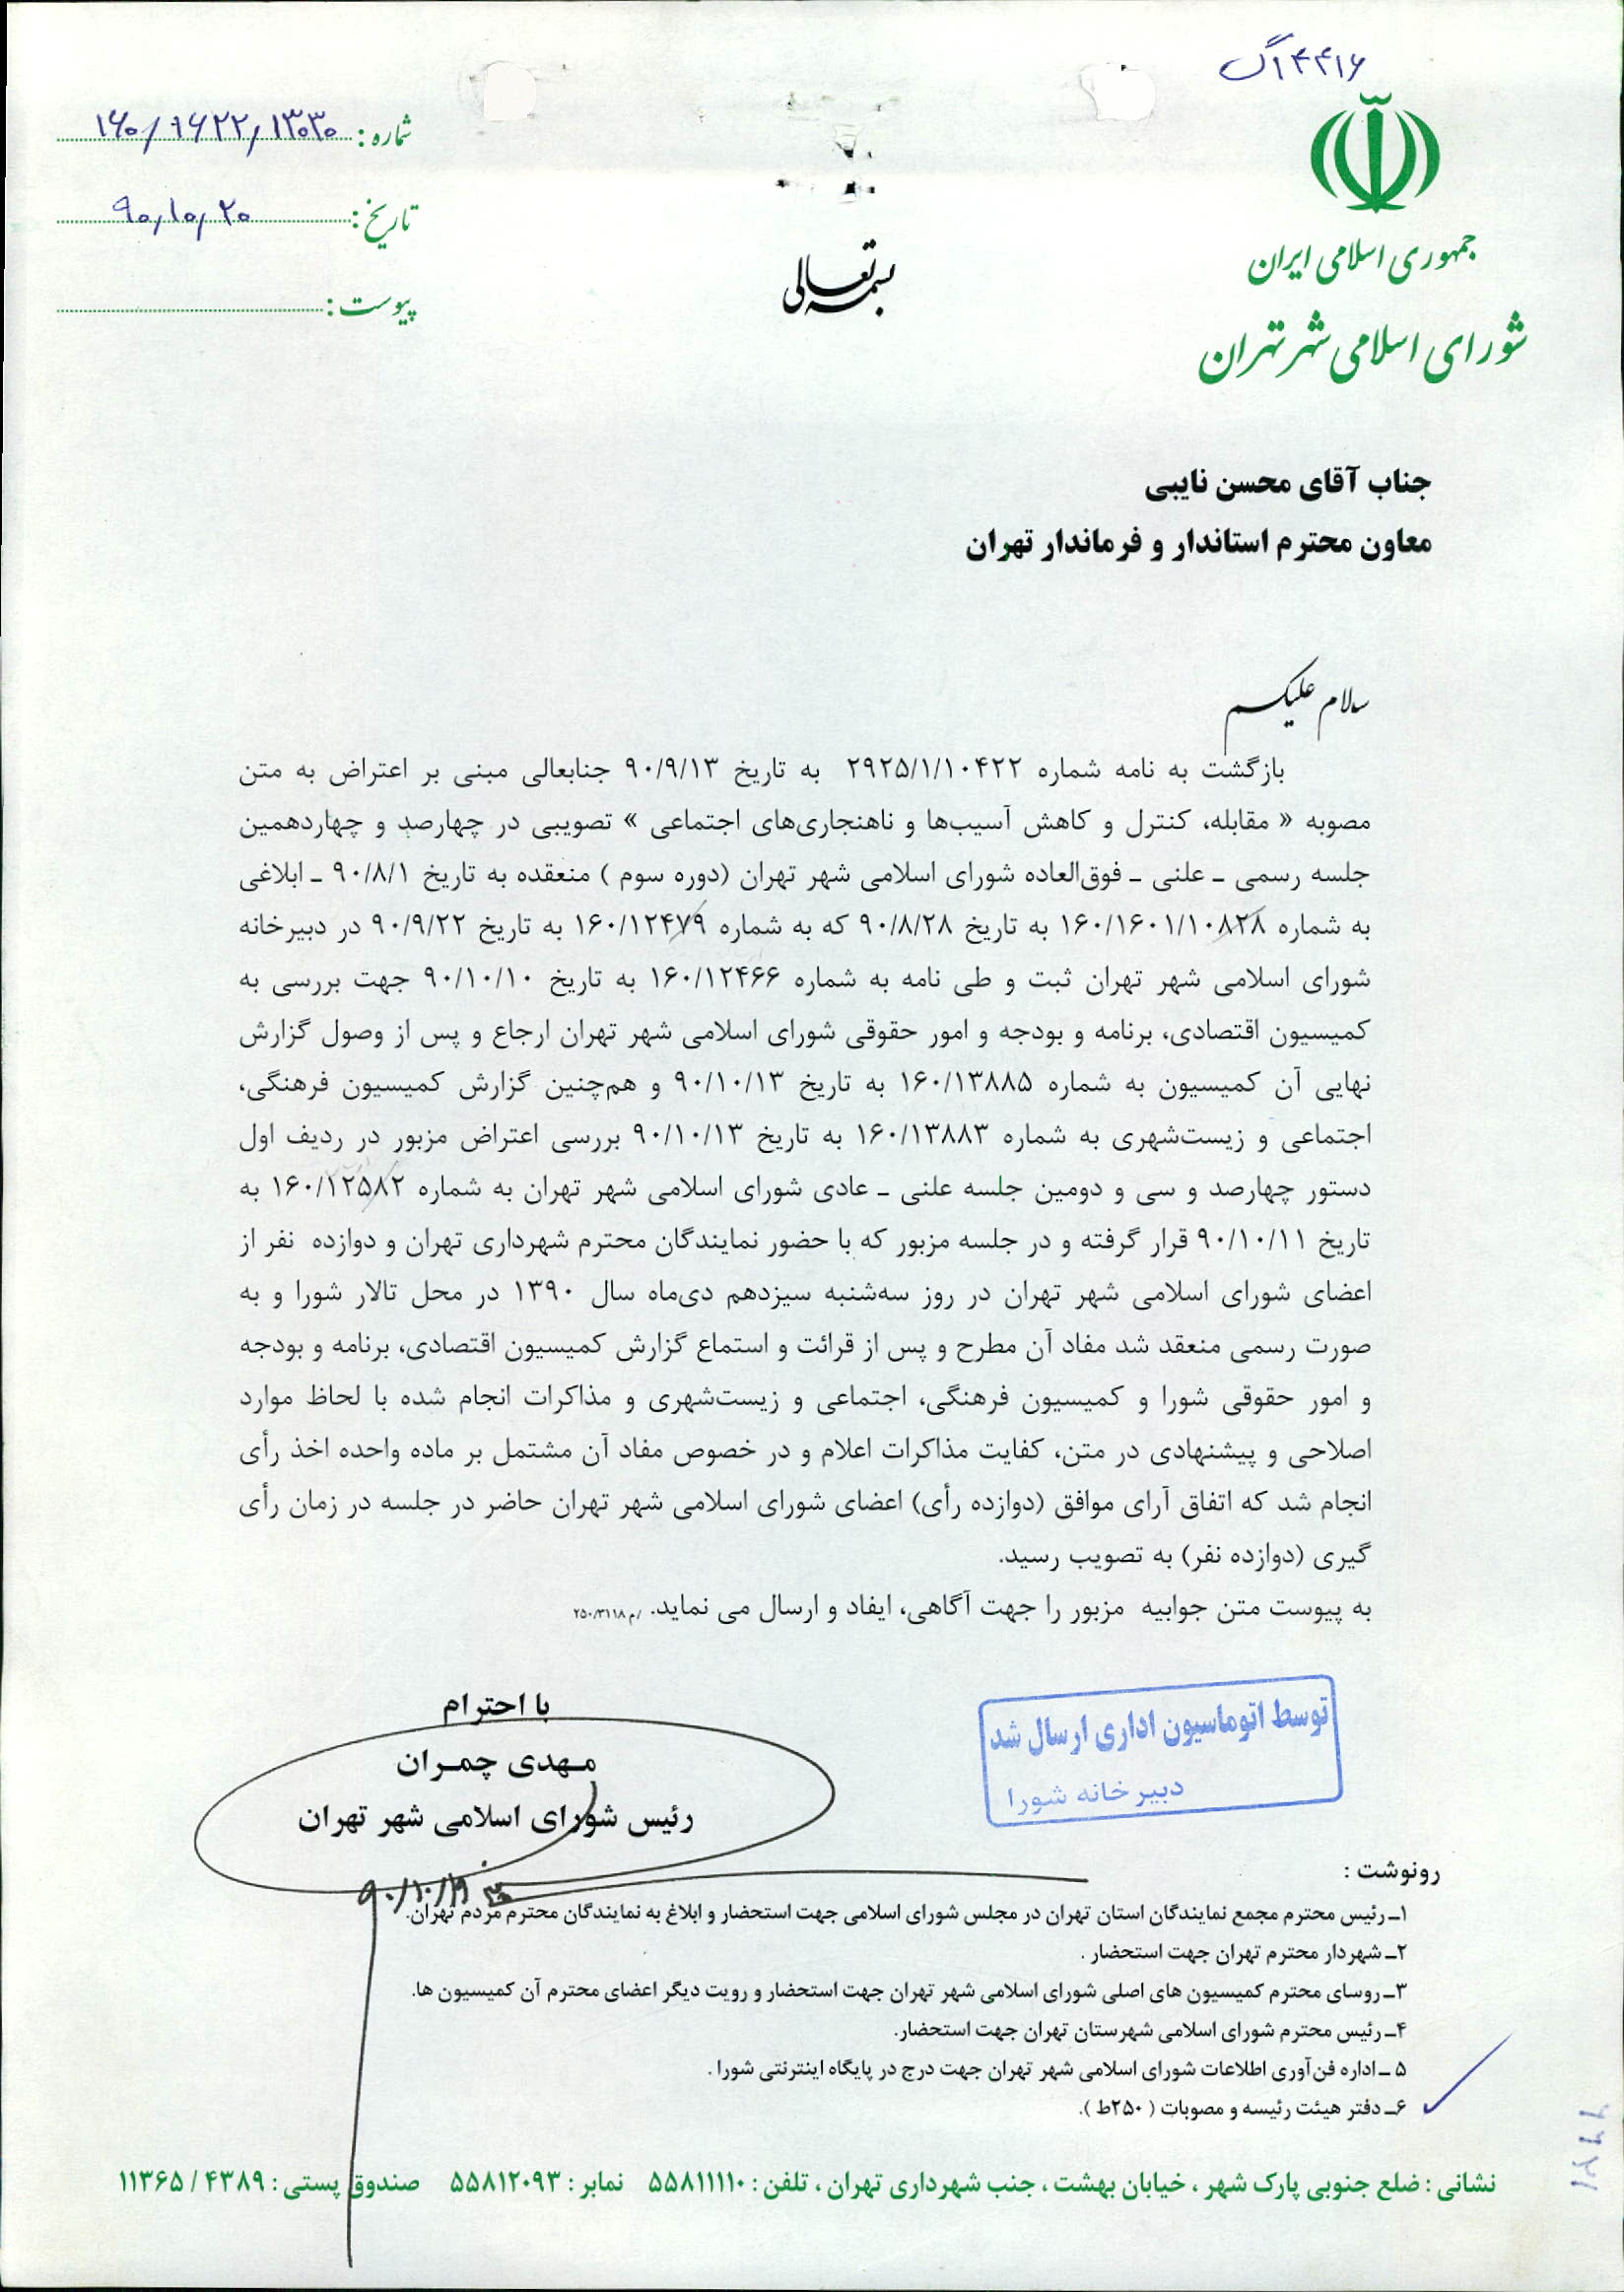 ۴۴۱۶آگ
جمهوری اسلامی ایران
شورای اسلامی شهر تهران
بسمه تعالی
شماره : ۱۶۰/۱۶۲۲/۱۳۰۳۰
تاریخ : ۹۰/۱۰/۲۰
پیوست :
جناب آقای محسن نایبی
معاون محترم استاندار و فرماندار تهران
سلام علیکم
بازگشت به نامه شماره ۲۹۲۵/۱/۱۰۴۲۲ به تاریخ ۹۰/۹/۱۳ جنابعالی مبنی بر اعتراض به متن
مصوبه « مقابله، کنترل و کاهش آسیب‌ها و ناهنجاری‌های اجتماعی » تصویبی در چهارصد و چهاردهمین
جلسه رسمی ـ علنی ـ فوق‌العاده شورای اسلامی شهر تهران (دوره سوم ) منعقده به تاریخ ۹۰/۸/۱ ـ ابلاغی
به شماره ۱۶۰/۱۶۰۱/۱۰۸۲۸ به تاریخ ۹۰/۸/۲۸ که به شماره ۱۶۰/۱۲۴۷۹ به تاریخ ۹۰/۹/۲۲ در دبیرخانه
شورای اسلامی شهر تهران ثبت و طی نامه به شماره ۱۶۰/۱۲۴۶۶ به تاریخ ۹۰/۱۰/۱۰ جهت بررسی به
کمیسیون اقتصادی، برنامه و بودجه و امور حقوقی شورای اسلامی شهر تهران ارجاع و پس از وصول گزارش
نهایی آن کمیسیون به شماره ۱۶۰/۱۳۸۸۵ به تاریخ ۹۰/۱۰/۱۳ و هم‌چنین گزارش کمیسیون فرهنگی،
اجتماعی و زیست‌شهری به شماره ۱۶۰/۱۳۸۸۳ به تاریخ ۹۰/۱۰/۱۳ بررسی اعتراض مزبور در ردیف اول
دستور چهارصد و سی و دومین جلسه علنی ـ عادی شورای اسلامی شهر تهران به شماره ۱۶۰/۱۲۵۸۲ به
تاریخ ۹۰/۱۰/۱۱ قرار گرفته و در جلسه مزبور که با حضور نمایندگان محترم شهرداری تهران و دوازده نفر از
اعضای شورای اسلامی شهر تهران در روز سه‌شنبه سیزدهم دی‌ماه سال ۱۳۹۰ در محل تالار شورا و به
صورت رسمی منعقد شد مفاد آن مطرح و پس از قرائت و استماع گزارش کمیسیون اقتصادی، برنامه و بودجه
و امور حقوقی شورا و کمیسیون فرهنگی، اجتماعی و زیست‌شهری و مذاکرات انجام شده با لحاظ موارد
اصلاحی و پیشنهادی در متن، کفایت مذاکرات اعلام و در خصوص مفاد آن مشتمل بر ماده واحده اخذ رأی
انجام شد که اتفاق آرای موافق (دوازده رأی) اعضای شورای اسلامی شهر تهران حاضر در جلسه در زمان رأی
گیری (دوازده نفر) به تصویب رسید.
به پیوست متن جوابیه مزبور را جهت آگاهی، ایفاد و ارسال می نماید. /م۲۵۰/۳۱۱۸
با احترام
مـهدی چمـران
رئیس شورای اسلامی شهر تهران
۹۰/۱۰/۱۹
توسط اتوماسیون اداری ارسال شد
دبیرخانه شورا
رونوشت :
۱ـ رئیس محترم مجمع نمایندگان استان تهران در مجلس شورای اسلامی جهت استحضار و ابلاغ به نمایندگان محترم مردم تهران.
۲ـ شهردار محترم تهران جهت استحضار .
۳ـ روسای محترم کمیسیون های اصلی شورای اسلامی شهر تهران جهت استحضار و رویت دیگر اعضای محترم آن کمیسیون ها.
۴ـ رئیس محترم شورای اسلامی شهرستان تهران جهت استحضار.
۵ ـ اداره فن‌آوری اطلاعات شورای اسلامی شهر تهران جهت درج در پایگاه اینترنتی شورا .
۶ـ دفتر هیئت رئیسه و مصوبات ( ۲۵۰ط ).
نشانی : ضلع جنوبی پارک شهر ، خیابان بهشت ، جنب شهرداری تهران ، تلفن : ۵۵۸۱۱۱۱۰ نمابر : ۵۵۸۱۲۰۹۳ صندوق پستی : ۴۳۸۹ / ۱۱۳۶۵